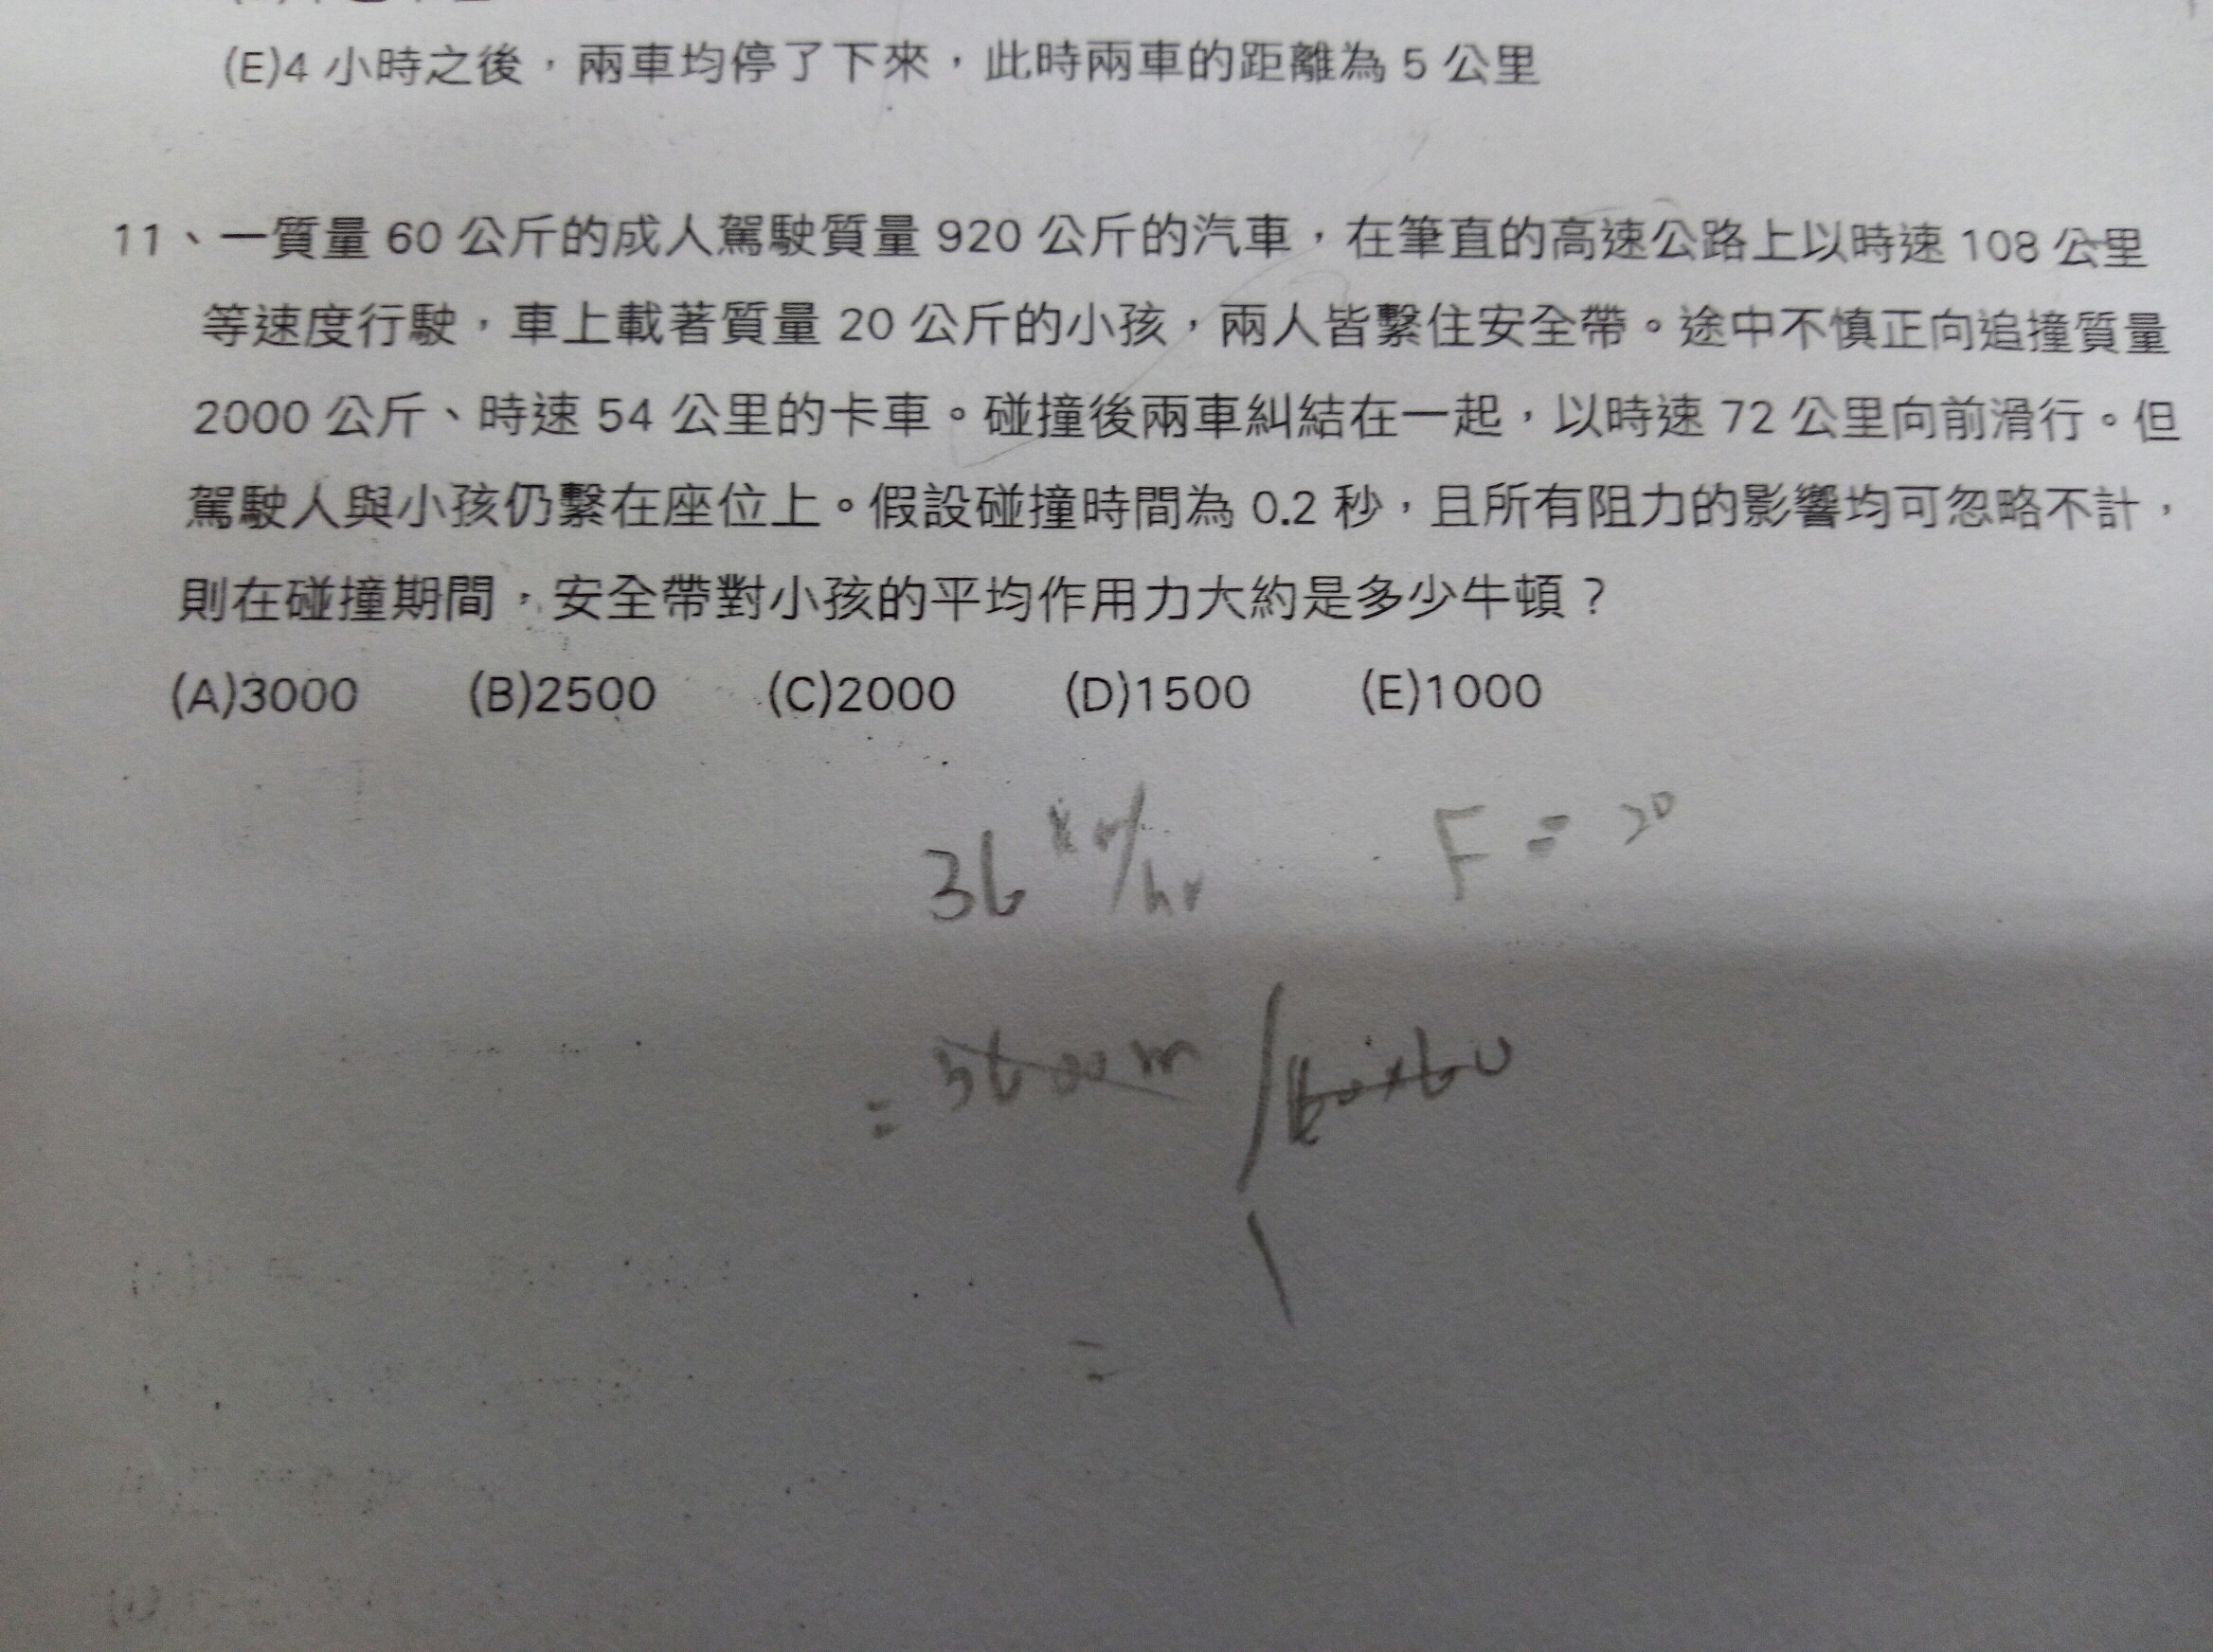 (E)4 小時之後，兩車均停了下來，此時兩車的距離為 5 公里
11、一質量 60 公斤的成人駕駛質量 920 公斤的汽車，在筆直的高速公路上以時速 108 公里
等速度行駛，車上載著質量 20 公斤的小孩，兩人皆繫住安全帶。途中不慎正向追撞質量
2000 公斤、時速 54 公里的卡車。碰撞後兩車糾結在一起，以時速 72 公里向前滑行。但
駕駛人與小孩仍繫在座位上。假設碰撞時間為 0.2 秒，且所有阻力的影響均可忽略不計，
則在碰撞期間，安全帶對小孩的平均作用力大約是多少牛頓？
(A)3000 (B)2500 (C)2000 (D)1500 (E)1000
36 km/hr F = 20
= 3600 m / 60×60
=